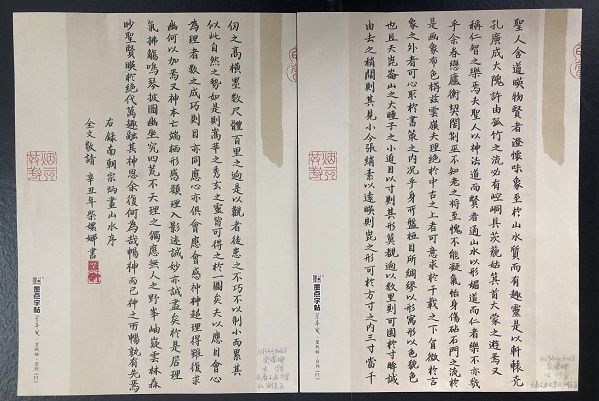 聖人含道暎物賢者澄懷味象至於山水質而有趣靈是以軒轅堯
孔廣成大隗許由孤竹之流必有崆峒具茨藐姑箕首大蒙之遊焉又
稱仁智之樂焉夫聖人以神法道而賢者通山水以形媚道而仁者樂不亦幾
乎余眷戀廬衡契闊荊巫不知老之將至愧不能凝氣怡身傷砧石門之流於
是畫象布色構茲雲嶺夫理絕於中古之上者可意求於千載之下旨微於言
象之外者可心取於書策之內況乎身所盤桓目所綢繆以形寫形以色貌色
也且夫崑崙山之大瞳子之小迫目以寸則其形莫覩迥以數里則可圍於寸眸誠
由去之稍闊則其見小今張綃素以遠暎則崑之形可於方寸之内三寸當千
仞之高橫墨數尺體百里之迥是以觀者徒患之不巧不以制小而累其
似此自然之勢如是則嵩華之秀玄之靈皆可得之於一圖矣夫以應目會心
為理者類之成巧則目亦同應心亦俱會應會感神神超理得雖復求
幽何以加焉又神本亡端栖形感類理入影迹誠妙亦誠盡矣於是居理
氣拂觴鳴琴披圖幽坐究四荒不天理之獨應無人之野峯岫嶷雲林森
眇聖賢暎於絕代萬趣融其神思余復何為哉暢神而已神之所暢孰有先焉
右錄南朝宗炳畫山水序
全文敬請 辛丑年柴嫘娜書
墨点字帖
墨点字帖